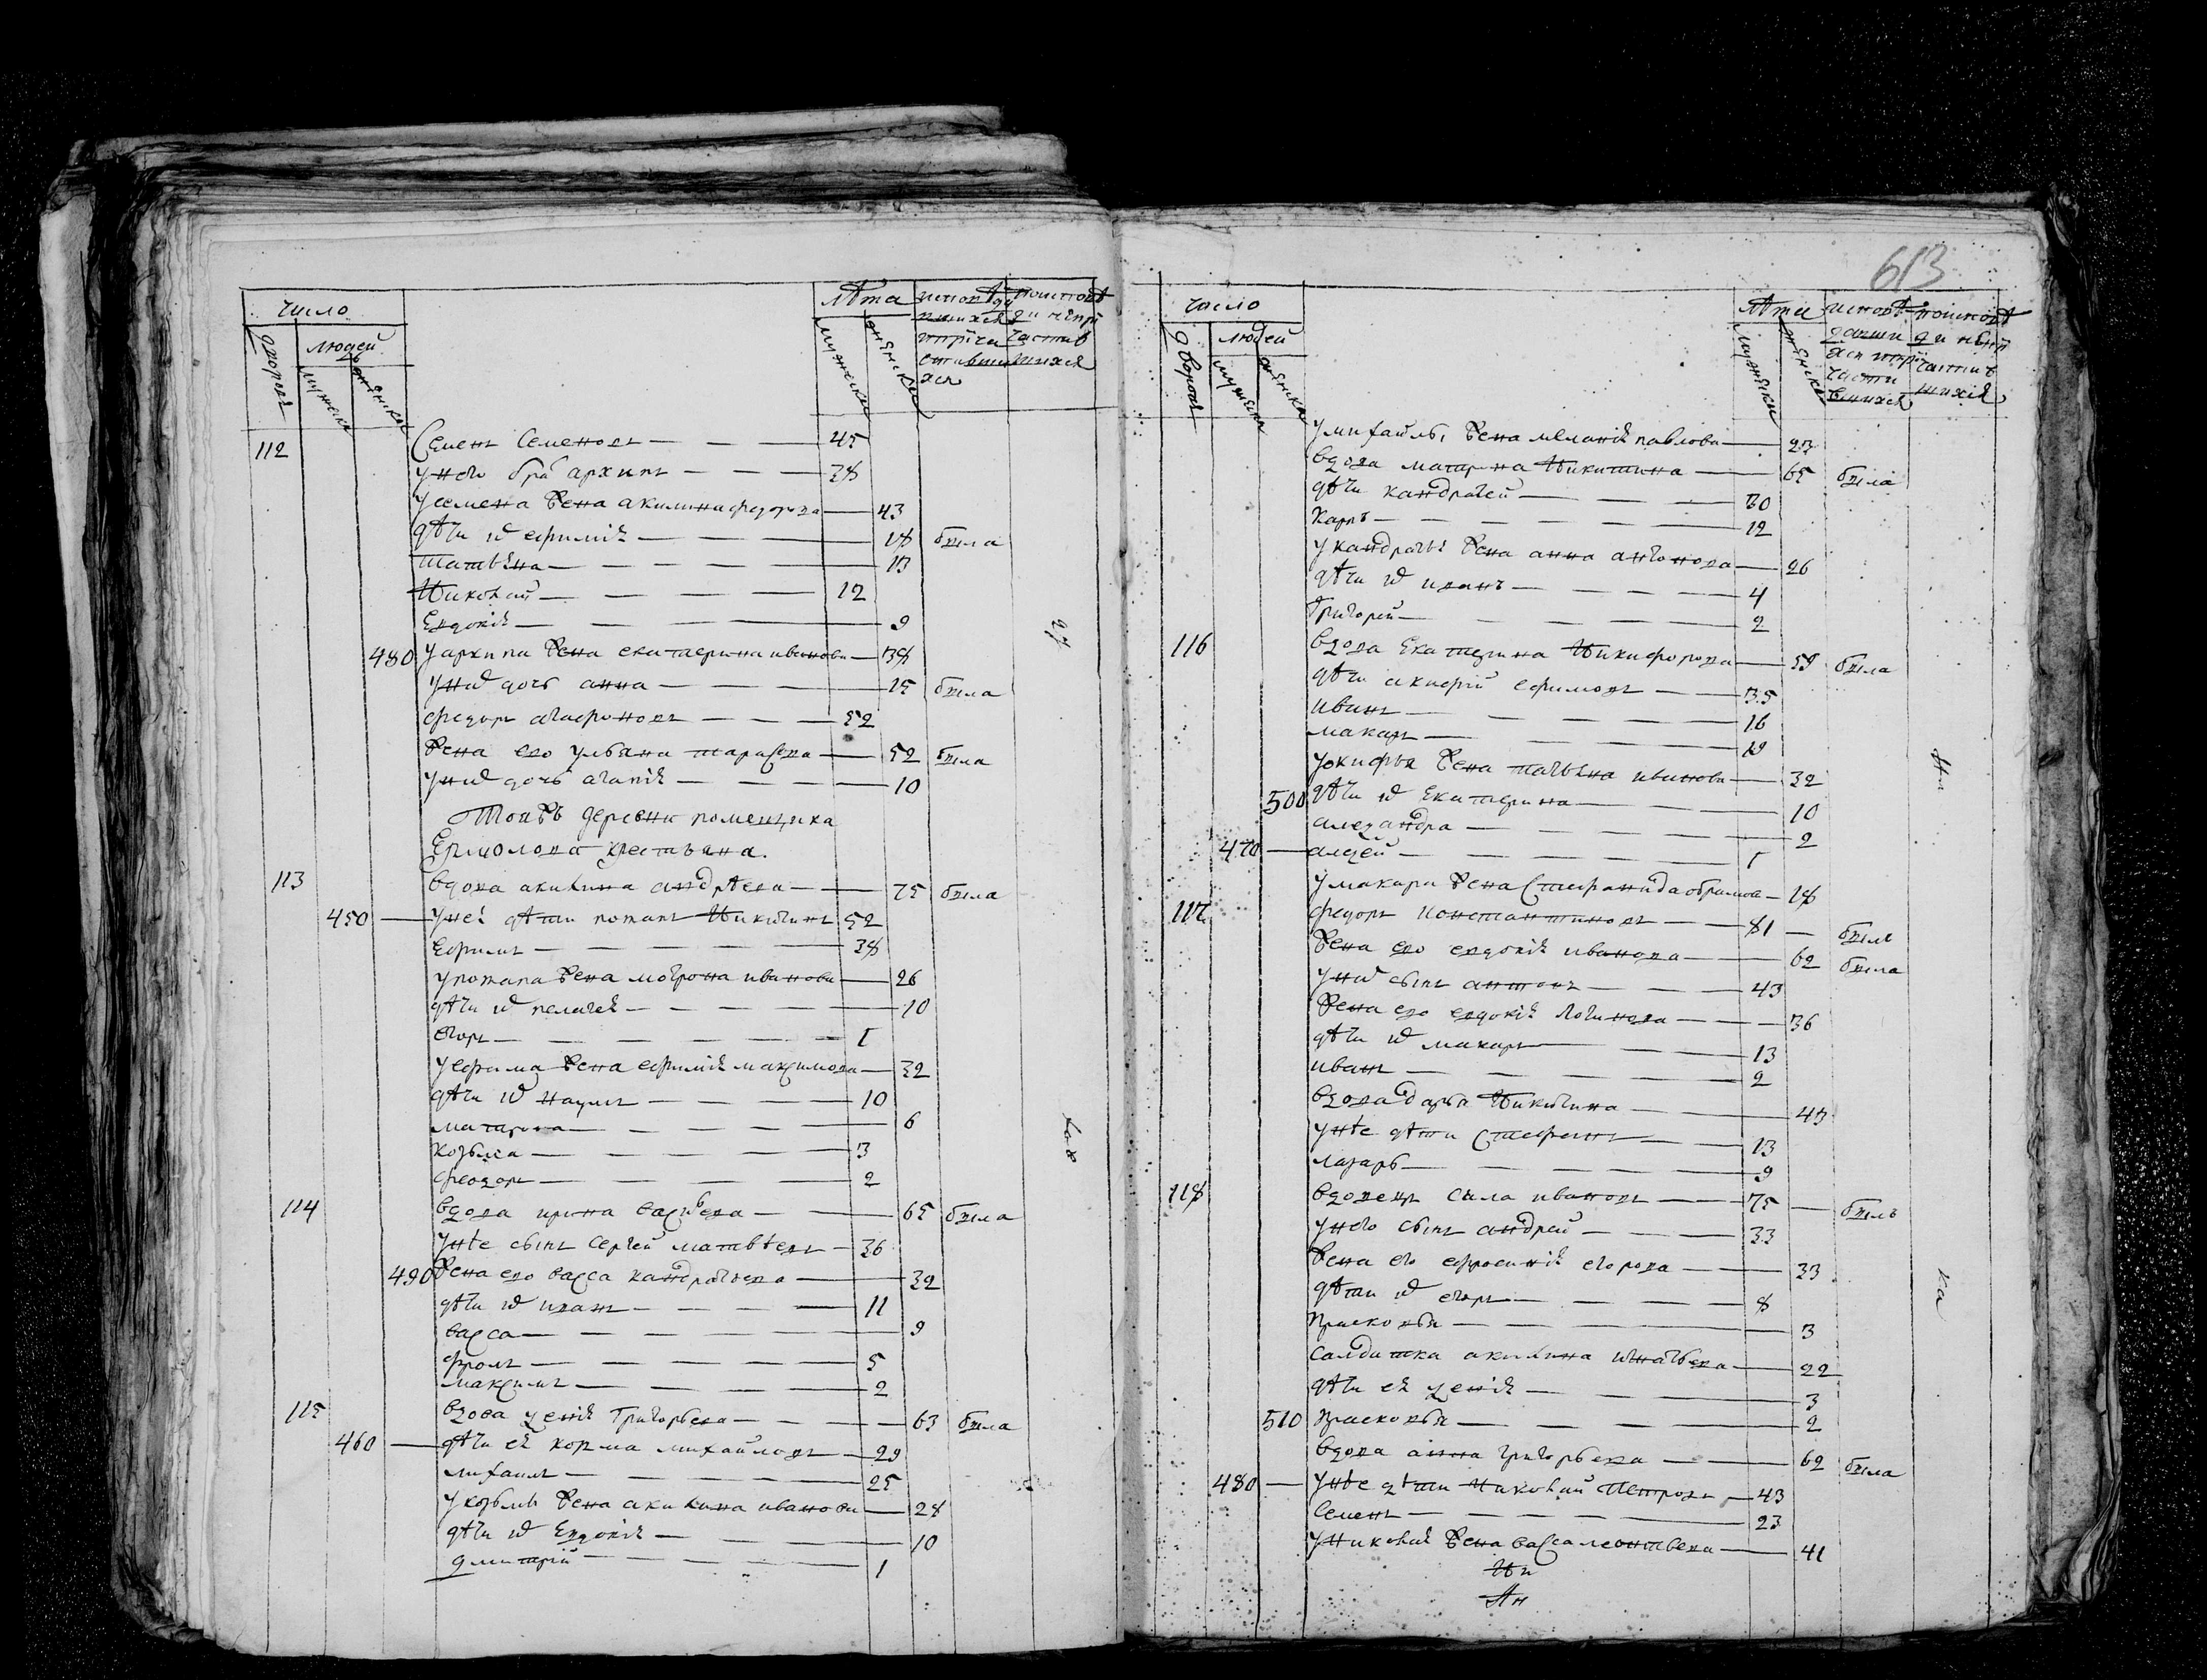 число
дворовъ
людей
мужеска
женска
лѣта
мужеска
женска
исповѣдавшихся и причастившихся
исповѣди и непричастившихся
112 Семенъ Семеновъ 45
у него братъ архипъ 38
у семена жена акилина федорова 43
дѣти их ефимія 18 была
татьяна 13
Николай 12
Евдокія 9
480 у архипа жена екатерина иванова 38
у них дочь анна 15 была
федоръ агафоновъ 52
жена ево ульяна тарасева 52 была
у них дочь агапія 10
Тояжъ деревни помещика
Ермолова крестьяна.
113 вдова акилина андрѣева 75 была
450 у неі дѣти потапъ Никитинъ 52
ефимъ 38
у потапа жена матрона иванова 26
дѣти их пелагея 10
егоръ 1
у ефима жена ефимія максимова 32
дѣти их наумъ 10
матрона 6
козьма 3
феодоръ 2
114 вдова ирина васильева 65 была
у нѣе сынъ сергей матвѣевъ 36
490 жена ево васса кандратьева 32
дѣти их иванъ 11
васса 9
фролъ 5
максимъ 2
115 вдова ксенія Григорьева 63 была
460 дѣти ея козма михайловъ 29
михаилъ 25
у козьмы жена акилина иванова 28
дѣти их Евдокія 10
дмитрій 1
613
число
дворовъ
людей
мужеска
женска
лѣта
мужеска
женска
исповѣдавшихся и причастившихся
исповѣди и непричастившихся
у михайлы жена меланія павлова 23
вдова матрона Никитина 65 была
дѣти кандратей 30
карпъ 12
у кандратья жена анна антонова 26
дѣти их иванъ 4
Григорей 2
116 вдова Екатерина Никифорова 59 была
дѣти акифій ефимовъ 35
иванъ 16
макаръ 19
у окифья жена татьяна иванова 32
500 дѣти их Екатерина 10
алеѯандра 2
470 алеѯей 1
у макара жена Стефанида абрамова 18
117 федоръ Константиновъ 81 былъ
жена ево евдокія иванова 62 была
у них сынъ антонъ 43
жена ево евдокія логинова 36
дѣти их макаръ 13
иванъ 2
вдова дарья Никитина 43
у нѣе дѣти Стефанъ 13
лазарь 9
118 вдовецъ сила ивановъ 75 былъ
у него сынъ андрей 33
жена его ефросинія егорова 33
дѣти их егоръ 8
Прасковья 3
салдатка акилина игнатьева 22
дѣти ея ѯенія 3
510 Прасковья 2
вдова анна григорьева 62 была
480 у нѣе дѣти Николай Петровъ 43
Семенъ 23
у николая жена васса леонтьева 41
Ни